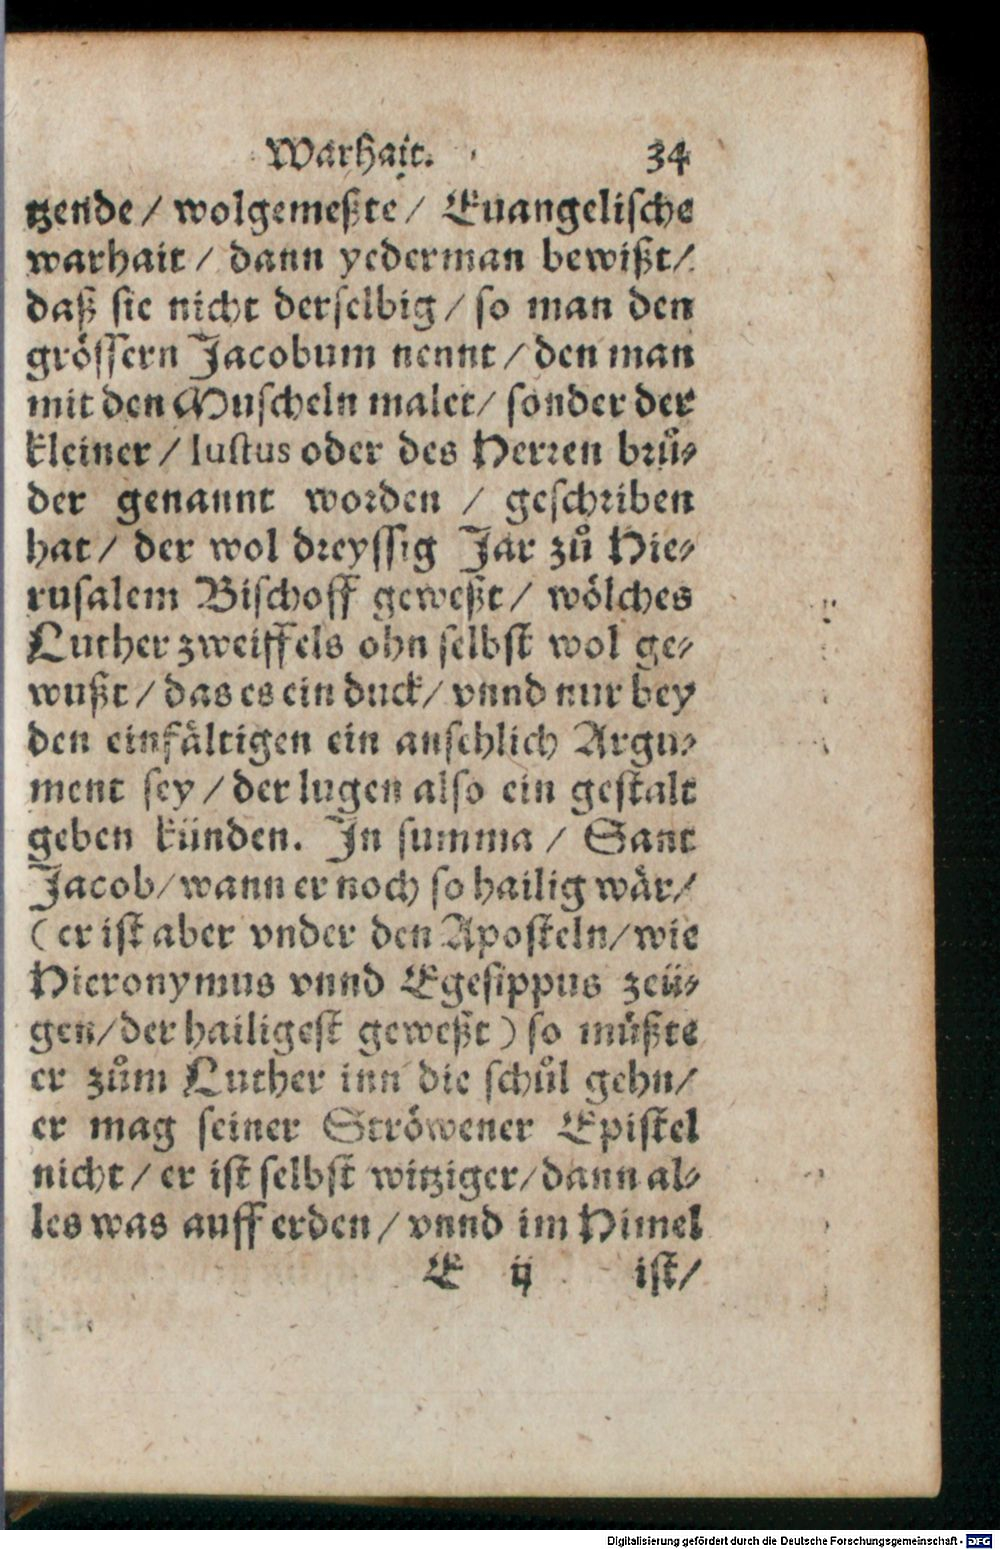 Warhait. 34
tzende / wolgemeßte / Euangelische
warhait / dann yederman bewißt /
daß sie nicht derselbig / so man den
grössern Jacobum nennt / den man
mit den Muscheln malet / sonder der
kleiner / Iustus oder des Herren brů⸗
der genannt worden / geschriben
hat / der wol dreyssig Jar zů Hie⸗
rusalem Bischoff geweßt / wölches
Luther zweiffels ohn selbst wol ge⸗
wußt / das es ein duck / vnnd nur bey
den einfältigen ein ansehlich Argu⸗
ment sey / der lugen also ein gestalt
geben künden. In summa / Sant
Jacob / wann er noch so hailig wär /
( er ist aber vnder den Aposteln / wie
Hieronymus vnnd Egesippus zeü⸗
gen / der hailigest geweßt ) so müßte
er zům Luther inn die schůl gehn /
er mag seiner Ströwener Epistel
nicht / er ist selbst witziger / dann al⸗
les was auff erden / vnnd im Himel
E ij ist /
Digitalisierung gefördert durch die Deutsche Forschungsgemeinschaft - DFG